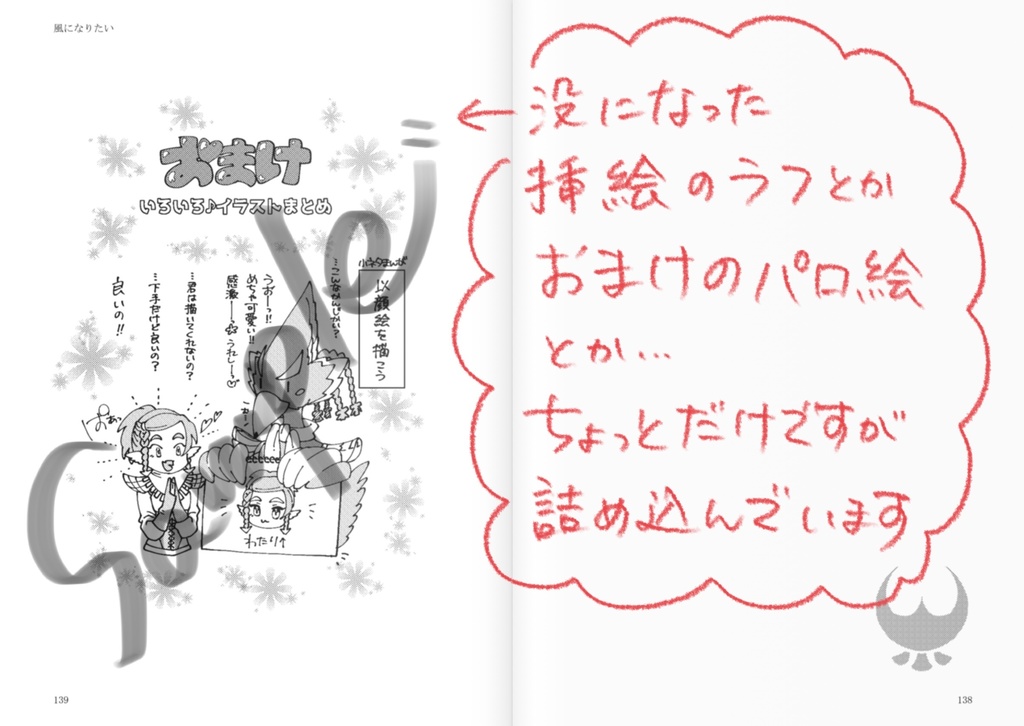 風になりたい
没になった
挿絵のラフとか
おまけのパロ絵
とか…
ちょっとだけですが
詰め込んでいます
おまけ
いろいろ♪イラストまとめ
小ネタまんが
似顔絵を描こう
…こんなかんじかい?
うおーっ!!
めちゃ可愛い!!
感激ーっ☆うれしー♡
…君は描いてくれないの?
…下手だけど良いの?
良いの!!
ぱぁっ
わたり↑
139
138